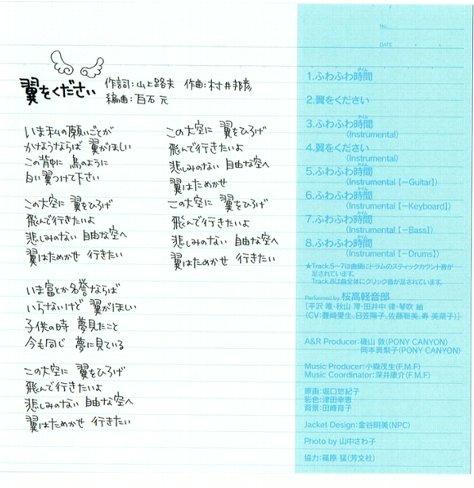 翼をください
作詞:山上路夫 作曲:村井邦彦
編曲:百石 元
いま私の願いごとが
かなうならば 翼がほしい
この背中に 鳥のように
白い翼つけて下さい
この大空に 翼をひろげ
飛んで行きたいよ
悲しみのない 自由な空へ
翼はためかせ 行きたい
いま富とか名誉ならば
いらないけど 翼がほしい
子供の時 夢見たこと
今も同じ 夢に見ている
この大空に 翼をひろげ
飛んで行きたいよ
悲しみのない 自由な空へ
翼はためかせ 行きたい
この大空に 翼をひろげ
飛んで行きたいよ
悲しみのない 自由な空へ
翼はためかせ
この大空に 翼をひろげ
飛んで行きたいよ
悲しみのない 自由な空へ
翼はためかせ 行きたい
No.
DATE
1.ふわふわ時間
タイム
2.翼をください
3.ふわふわ時間
タイム
(Instrumental)
4.翼をください
(Instrumental)
5.ふわふわ時間
タイム
(Instrumental [-Guitar])
6.ふわふわ時間
タイム
(Instrumental [-Keyboard])
7.ふわふわ時間
タイム
(Instrumental [-Bass])
8.ふわふわ時間
タイム
(Instrumental [-Drums])
★Track.5~7は曲頭にドラムのスティックカウント音が
足されています。
Track.8は曲全体にクリック音が足されています。
Performed by 桜高軽音部
[平沢 唯・秋山 澪・田井中 律・琴吹 紬
(CV:豊崎愛生、日笠陽子、佐藤聡美、寿 美菜子)]
A&R Producer:磯山 敦(PONY CANYON)
岡本真梨子(PONY CANYON)
Music Producer:小森茂生(F.M.F)
Music Coordinator:深井康介(F.M.F)
原画:堀口悠紀子
彩色:津田幸恵
背景:田峰育子
Jacket Design:金谷明美(NPC)
Photo by 山中さわ子
協力:篠原 猛(芳文社)